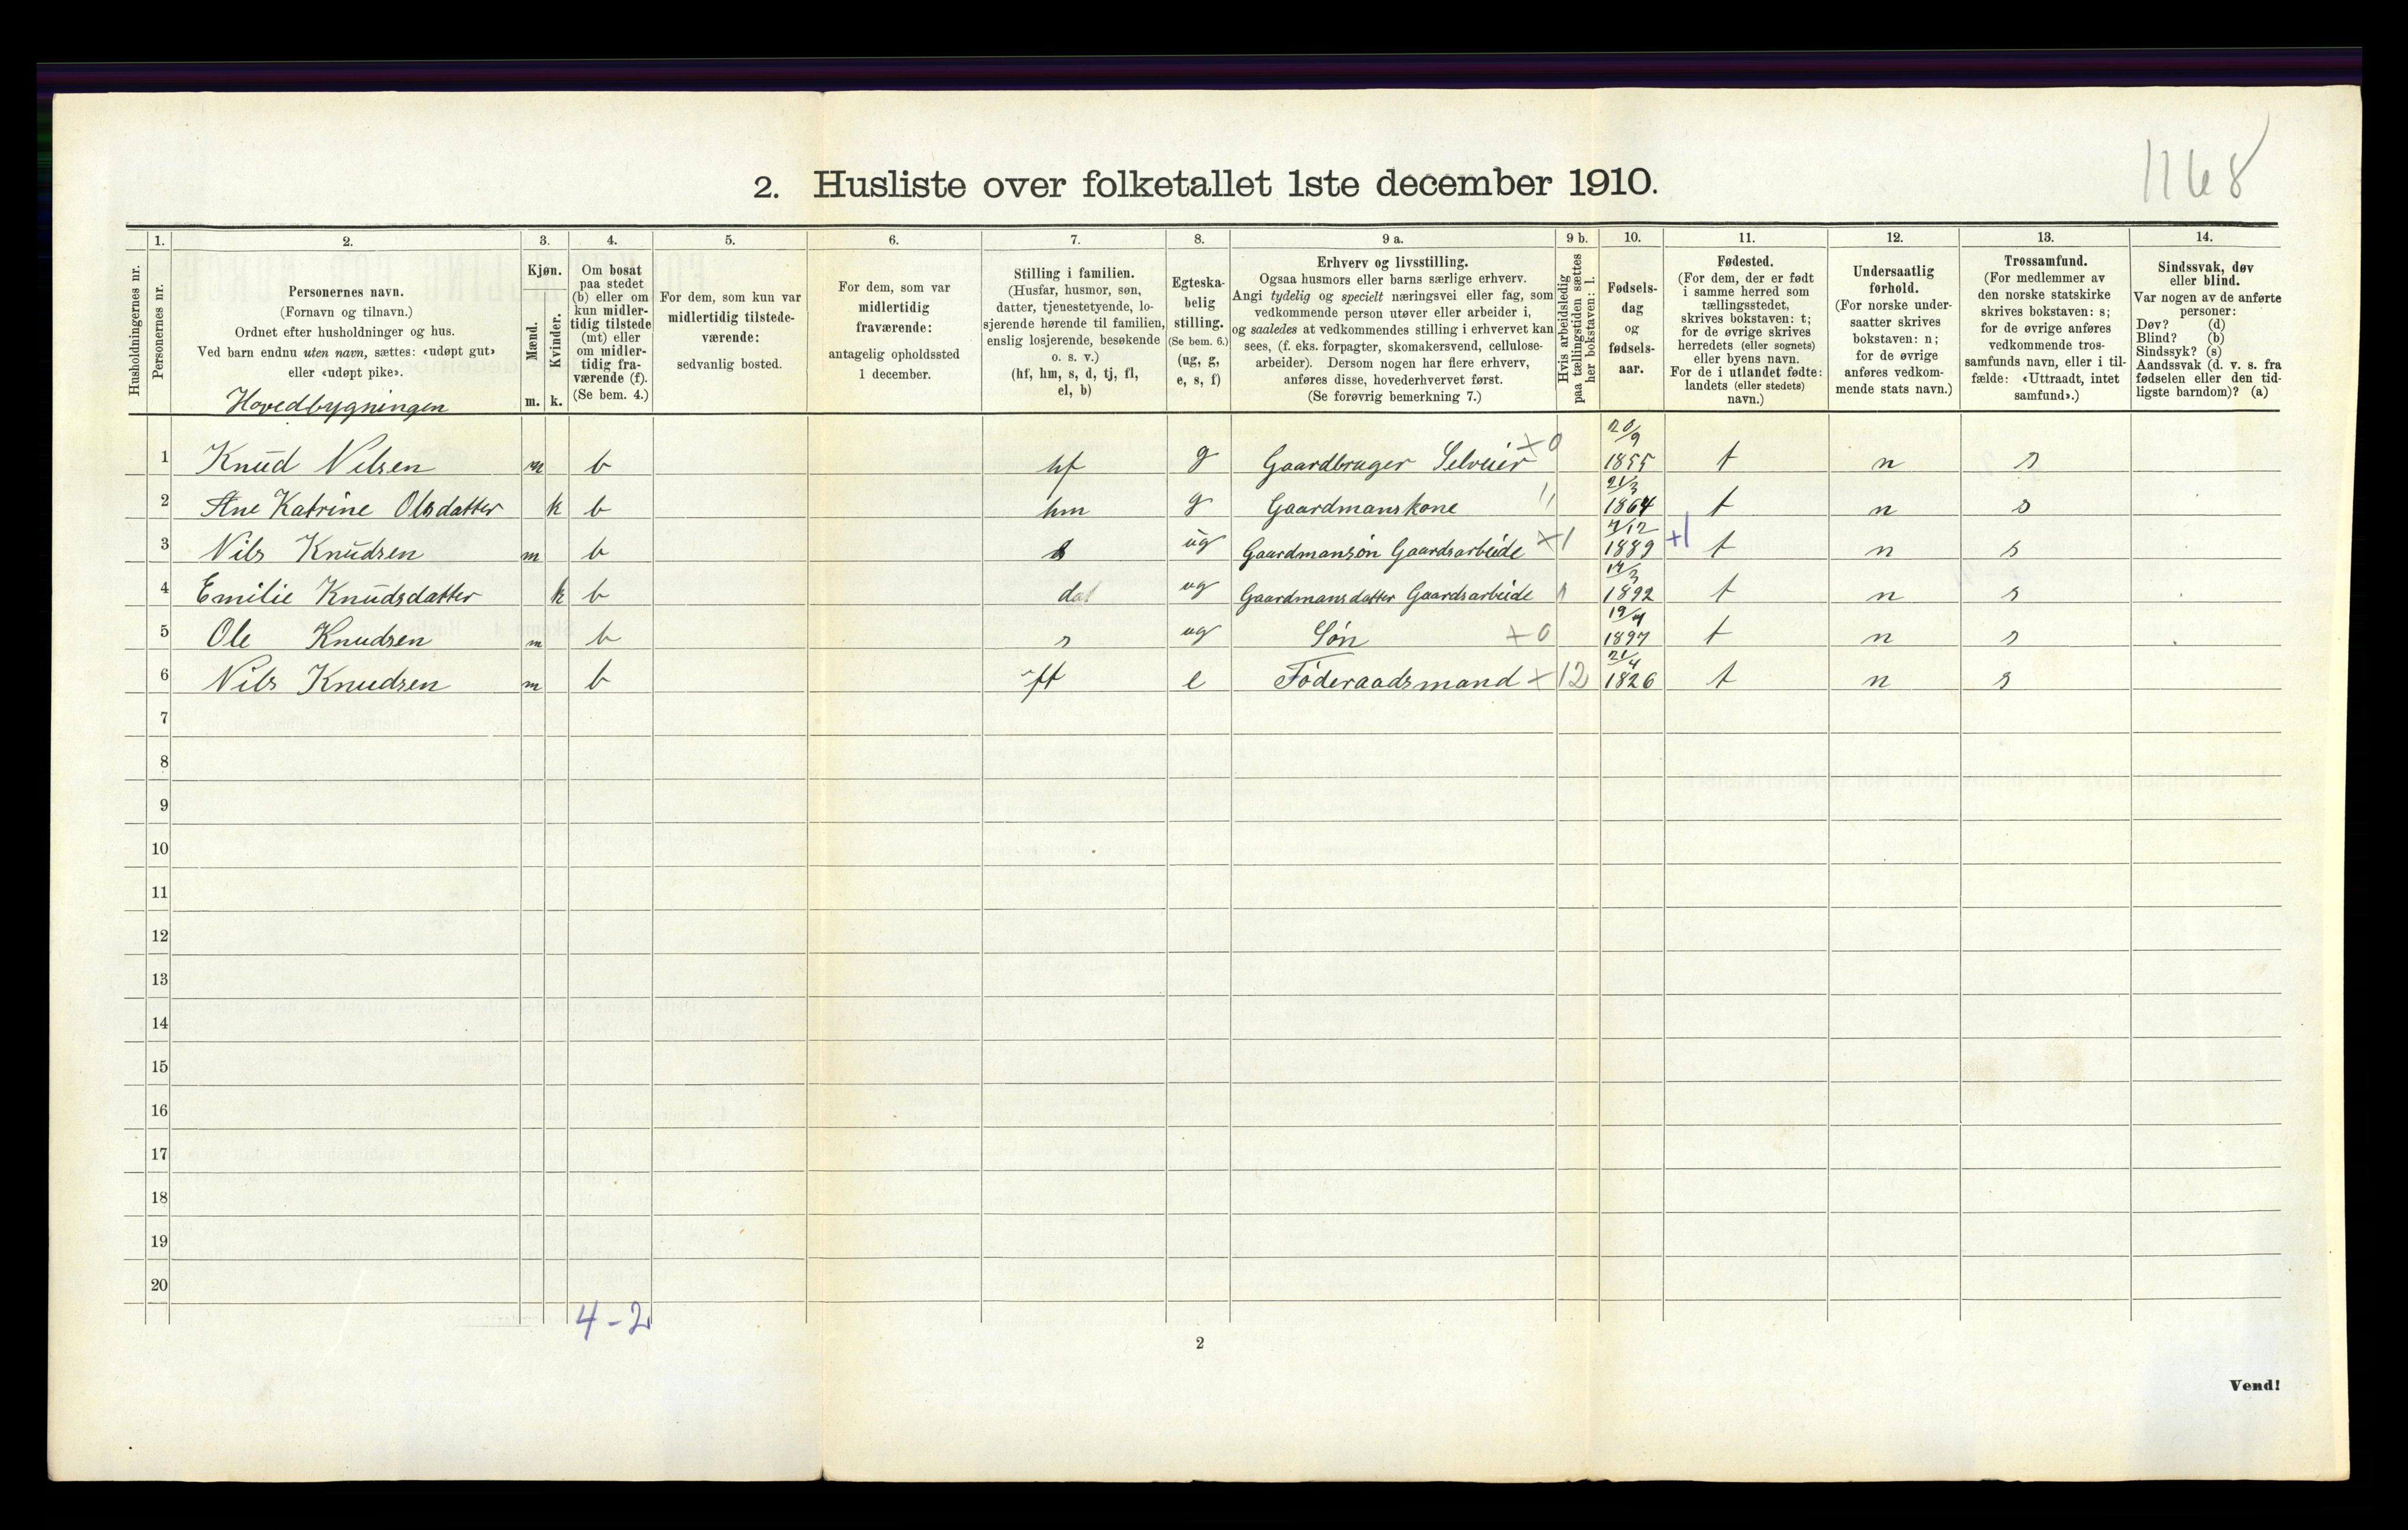 1168
2. Husliste over folketallet 1ste december 1910.
Husholdningernes nr.
1. Personernes nr.
2. Personernes navn.
(Fornavn og tilnavn.)
Ordnet efter husholdninger og hus.
Ved barn endnu uten navn, sættes: «udøpt gut»
eller «udøpt pike».
Hovedbygningen
3. Kjøn.
Mænd. Kvinder.
m. k.
4. Om bosat
paa stedet
(b) eller om
kun midler-
tidig tilstede
(mt) eller
om midler-
tidig fra-
værende (f).
(Se bem. 4.)
5. For dem, som kun var
midlertidig tilstede-
værende:
sedvanlig bosted.
6. For dem, som var
midlertidig
fraværende:
antagelig opholdssted
1 december.
7. Stilling i familien.
(Husfar, husmor, søn,
datter, tjenestetyende, lo-
sjerende hørende til familien,
enslig losjerende, besøkende
o. s. v.)
(hf, hm, s, d, tj, fl,
el, b)
8. Egteska-
belig
stilling.
(Se bem. 6.)
(ug, g,
e, s, f)
9 a. Erhverv og livsstilling.
Ogsaa husmors eller barns særlige erhverv.
Angi tydelig og specielt næringsvei eller fag, som
vedkommende person utøver eller arbeider i,
og saaledes at vedkommendes stilling i erhvervet kan
sees, (f. eks. forpagter, skomakersvend, cellulose-
arbeider). Dersom nogen har flere erhverv,
anføres disse, hovederhvervet først.
(Se forøvrig bemerkning 7.)
9 b. Hvis arbeidsledig
paa tællingstiden sættes
her bokstaven: l.
10. Fødsels-
dag
og
fødsels-
aar.
11. Fødested.
(For dem, der er født
i samme herred som
tællingsstedet,
skrives bokstaven: t;
for de øvrige skrives
herredets (eller sognets)
eller byens navn.
For de i utlandet fødte:
landets (eller stedets)
navn.)
12. Undersaatlig
forhold.
(For norske under-
saatter skrives
bokstaven: n;
for de øvrige
anføres vedkom-
mende stats navn.)
13. Trossamfund.
(For medlemmer av
den norske statskirke
skrives bokstaven: s;
for de øvrige anføres
vedkommende tros-
samfunds navn, eller i til-
fælde: «Uttraadt, intet
samfund».)
14. Sindssvak, døv
eller blind.
Var nogen av de anførte
personer:
Døv? (d)
Blind? (b)
Sindssyk? (s)
Aandssvak (d. v. s. fra
fødselen eller den tid-
ligste barndom)? (a)
1 Knud Nilsen m b hf g Gaardbruger Selveier +0 20/9 1855 t n s
2 Ane Katrine Olsdatter k b hm g Gaardmanskone 21/3 1864 t n s
3 Nils Knudsen m b s ug Gaardmansøn Gaardsarbeide +1 1889 +1 t n s
4 Emilie Knudsdatter k b dat ug Gaardmansdatter Gaardsarbeide 14/3 1892 t n s
5 Ole Knudsen m b s ug Søn +0 1897 t n s
6 Nils Knudsen m b ft e Føderaadsmand +12 21/4 1826 t n s
7
8
9
10
11
12
13
14
15
16
17
18
19
20
4-2
2
Vend!